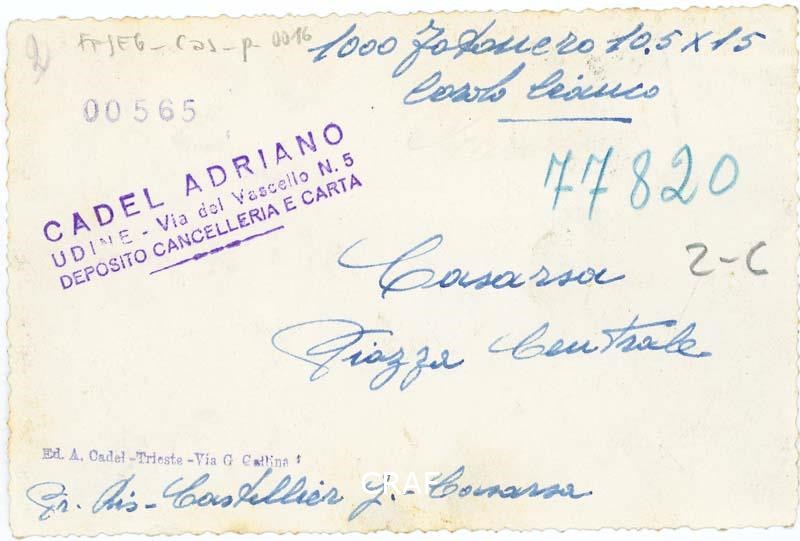 2 FPJEG-Cas-p-0016
1000 Fotonero 10.5 x 15
bianco
00565
CADEL ADRIANO
UDINE - Via del Vascello N. 5
DEPOSITO CANCELLERIA E CARTA
77820
Casarsa
2-C
Piazza Centrale
Ed. A. Cadel - Trieste - Via G Gallina
Castellier J. - Casarsa
CRAF